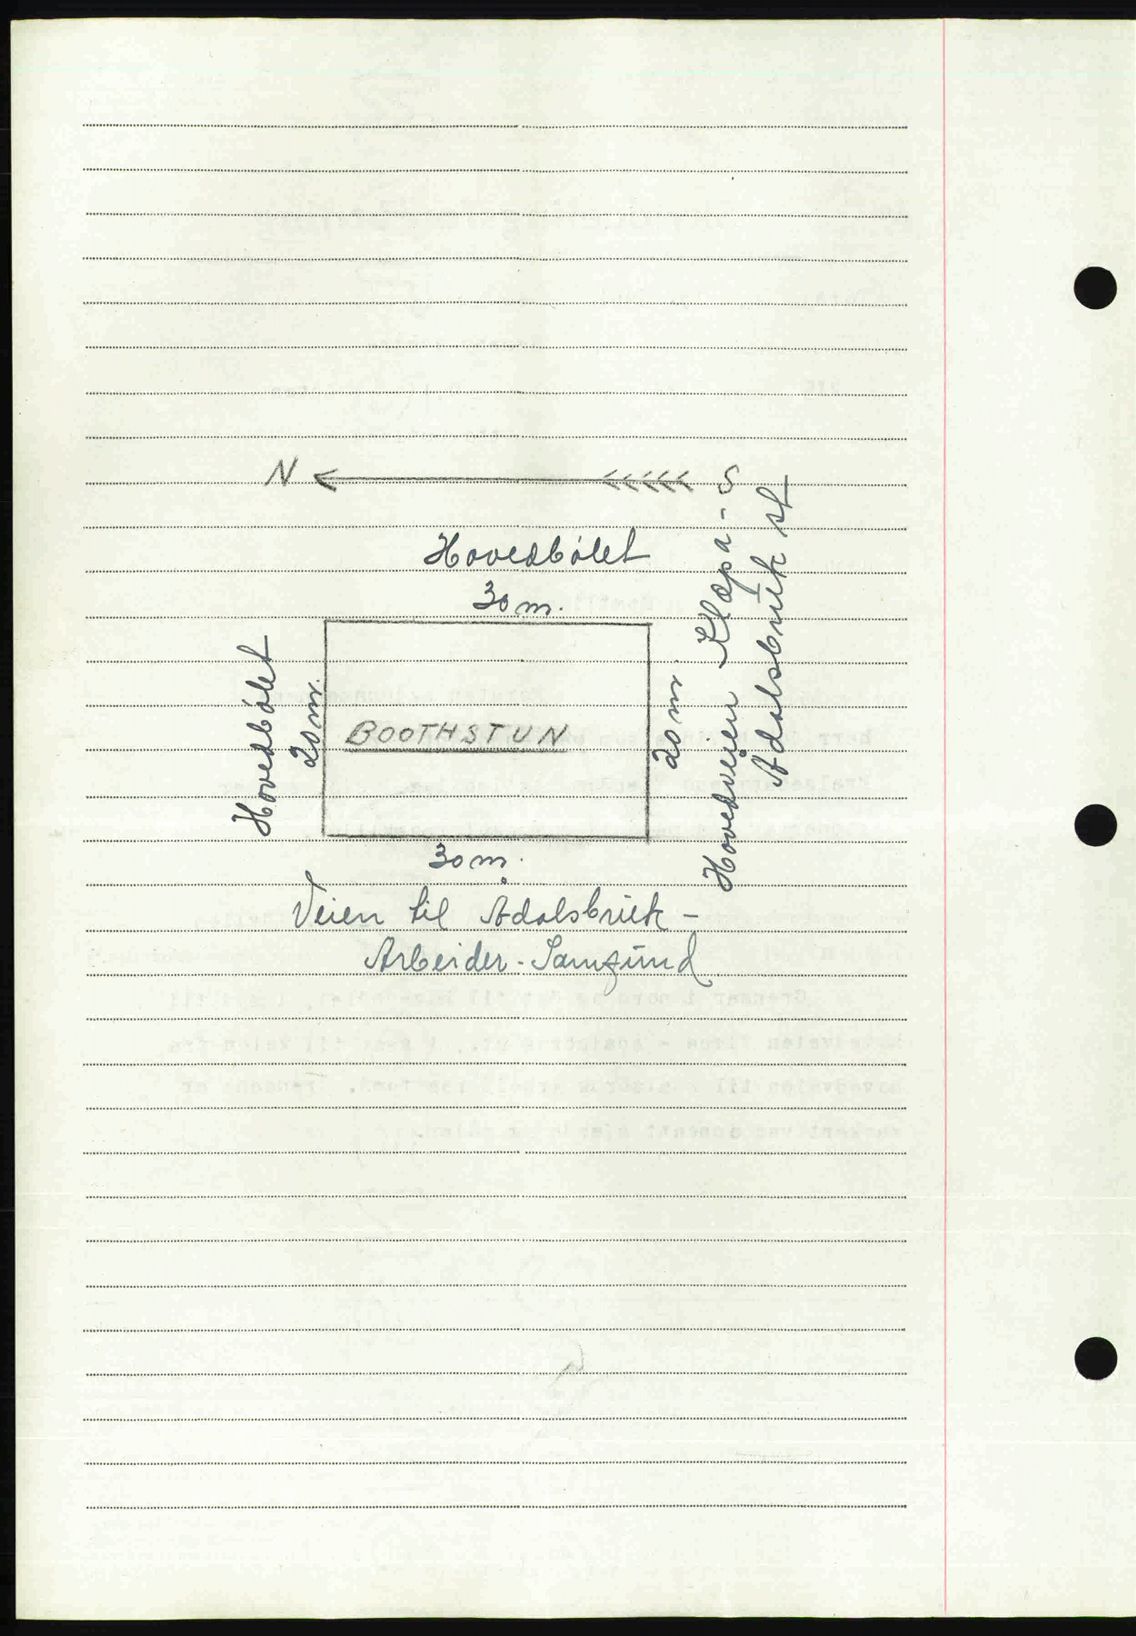 N S
Hovedbølet
30 m.
Hovedbølet
20 m.
BOOTHSTUN
20 m.
Hovedveien Klæpa-
Ådalsbruk st
30 m.
Veien til Ådalsbruk -
Arbeider-Samfund